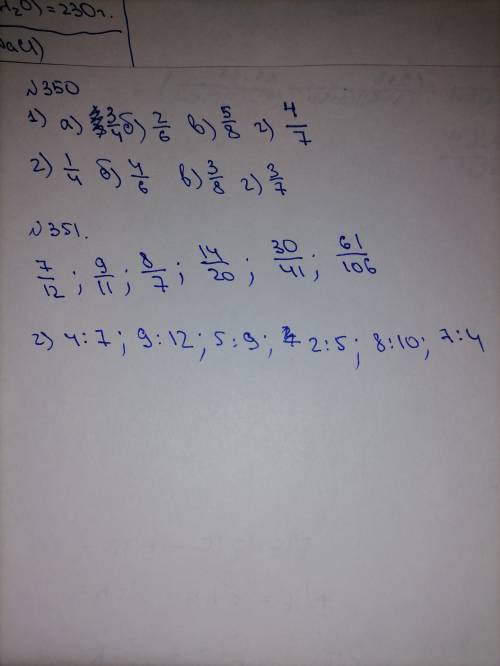 H₂O) = 230г.
NaCl)
№350
1) а) 3/4 б) 2/6 в) 5/8 г) 4/7
2) 1/4 б) 4/6 в) 3/8 г) 3/7
№351.
7/12 ; 9/11 ; 8/7 ; 14/20 ; 30/41 ; 61/106
2) 4:7 ; 9:12 ; 5:9 ; 2:5 ; 8:10 ; 7:4